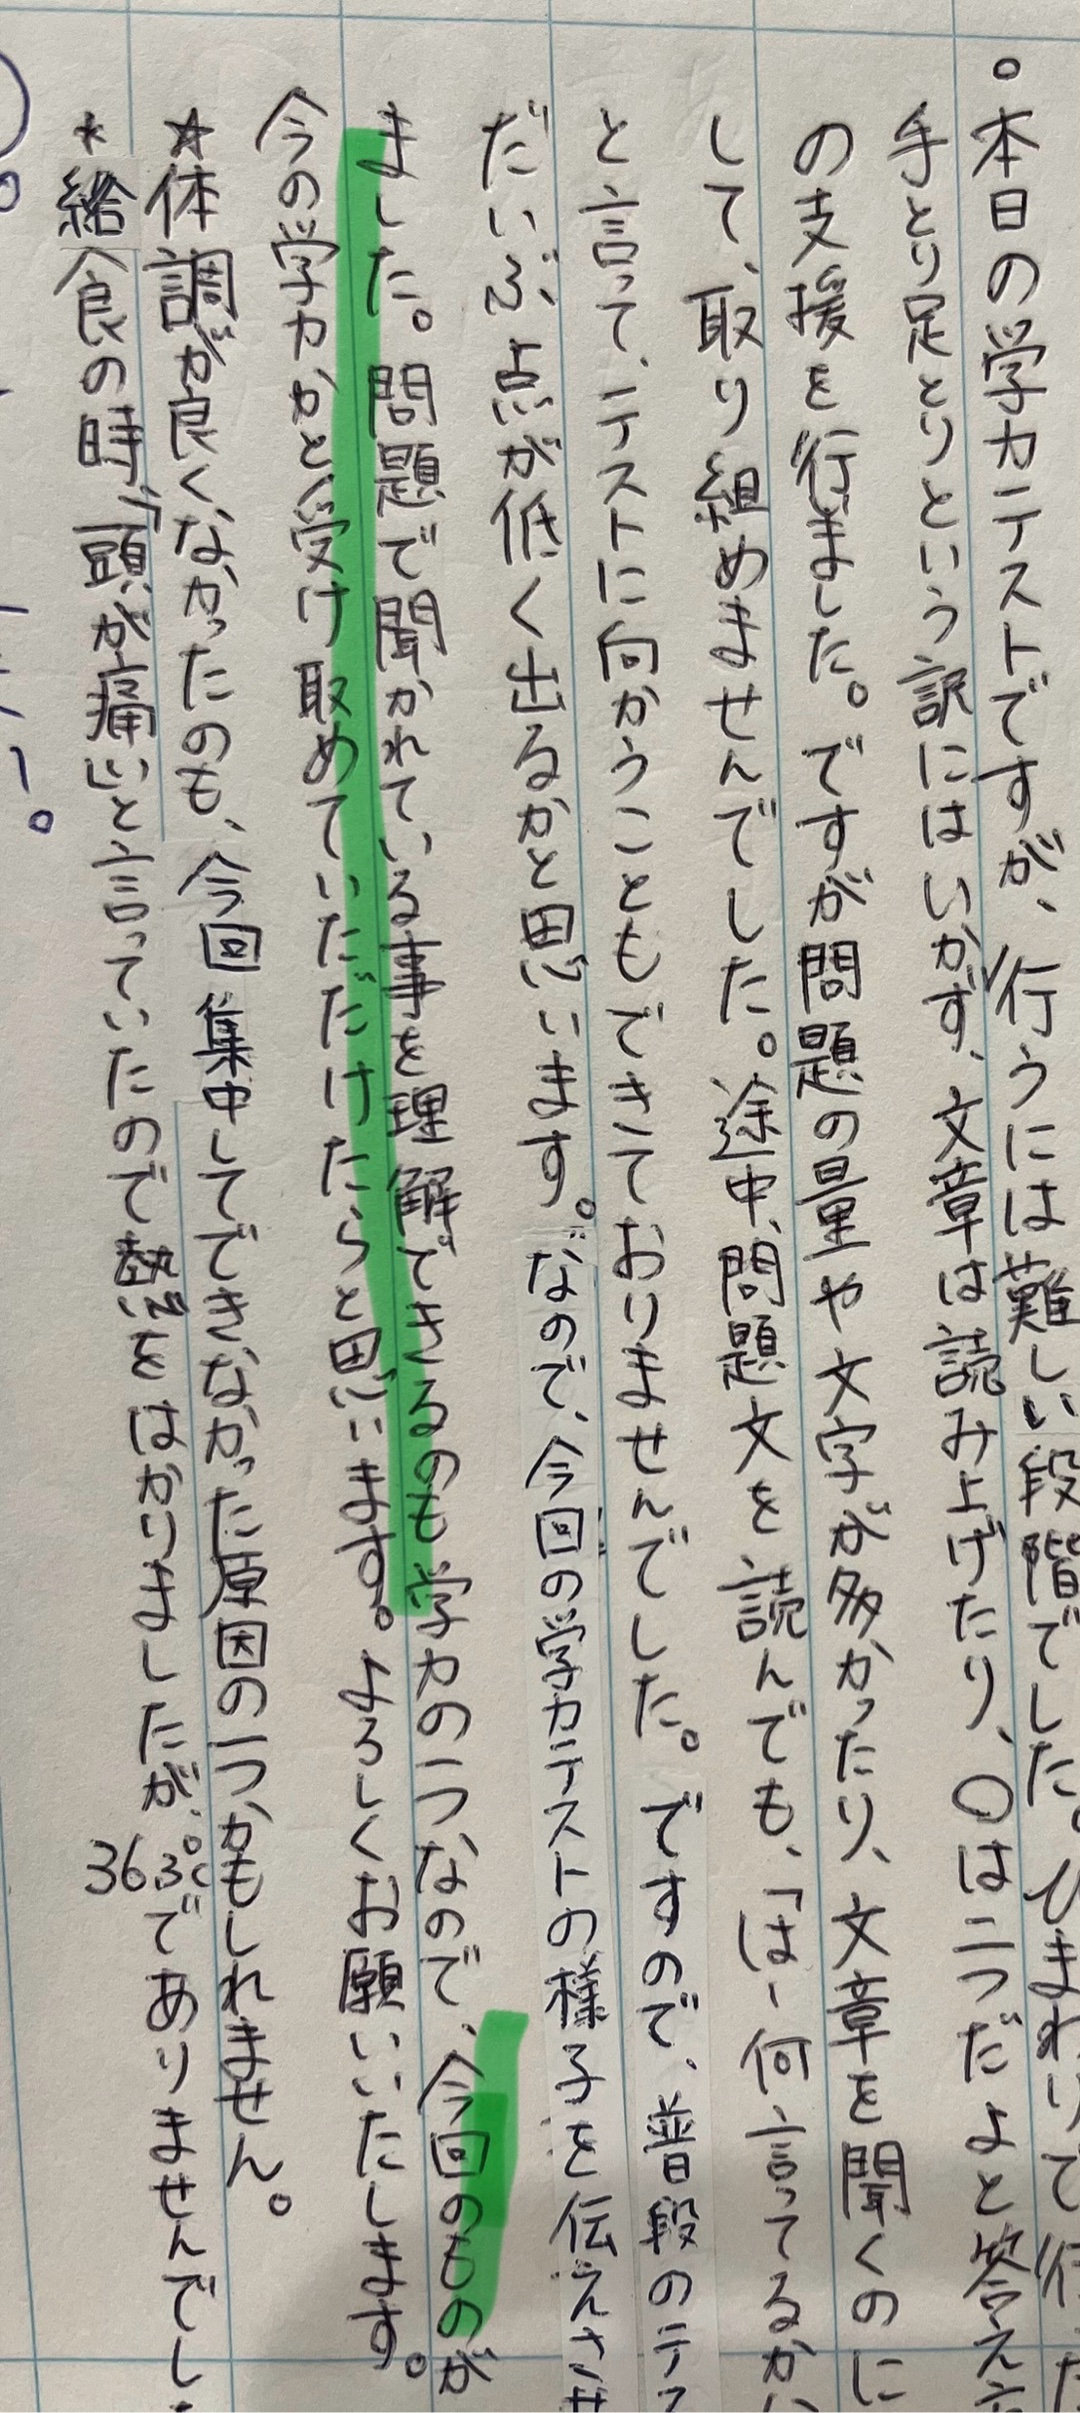 。本日の学力テストですが、行うには難しい段階でした。ひまわりで行った
手とり足とりという訳にはいかず、文章は読み上げたり、○は二つだよと答え方
の支援を行ました。ですが問題の量や文字が多かったり、文章を聞くのに
して、取り組めませんでした。途中、問題文を読んでも、「はー何言ってるか
と言って、テストに向かうこともできておりませんでした。ですので、普段のテス
だいぶ点が低く出るかと思います。なので、今回の学力テストの様子を伝えさせ
ました。問題で聞かれている事を理解できるのも学力の一つなので、今回のものが
今の学力かと受け取めていただだけたらと思います。よろしくお願いいたします。
☆体調が良くなかったのも、今回集中してできなかった原因の一つかもしれません。
*給食の時、「頭が痛いと言っていたので熱をはかりましたが、36.3℃でありませんでし